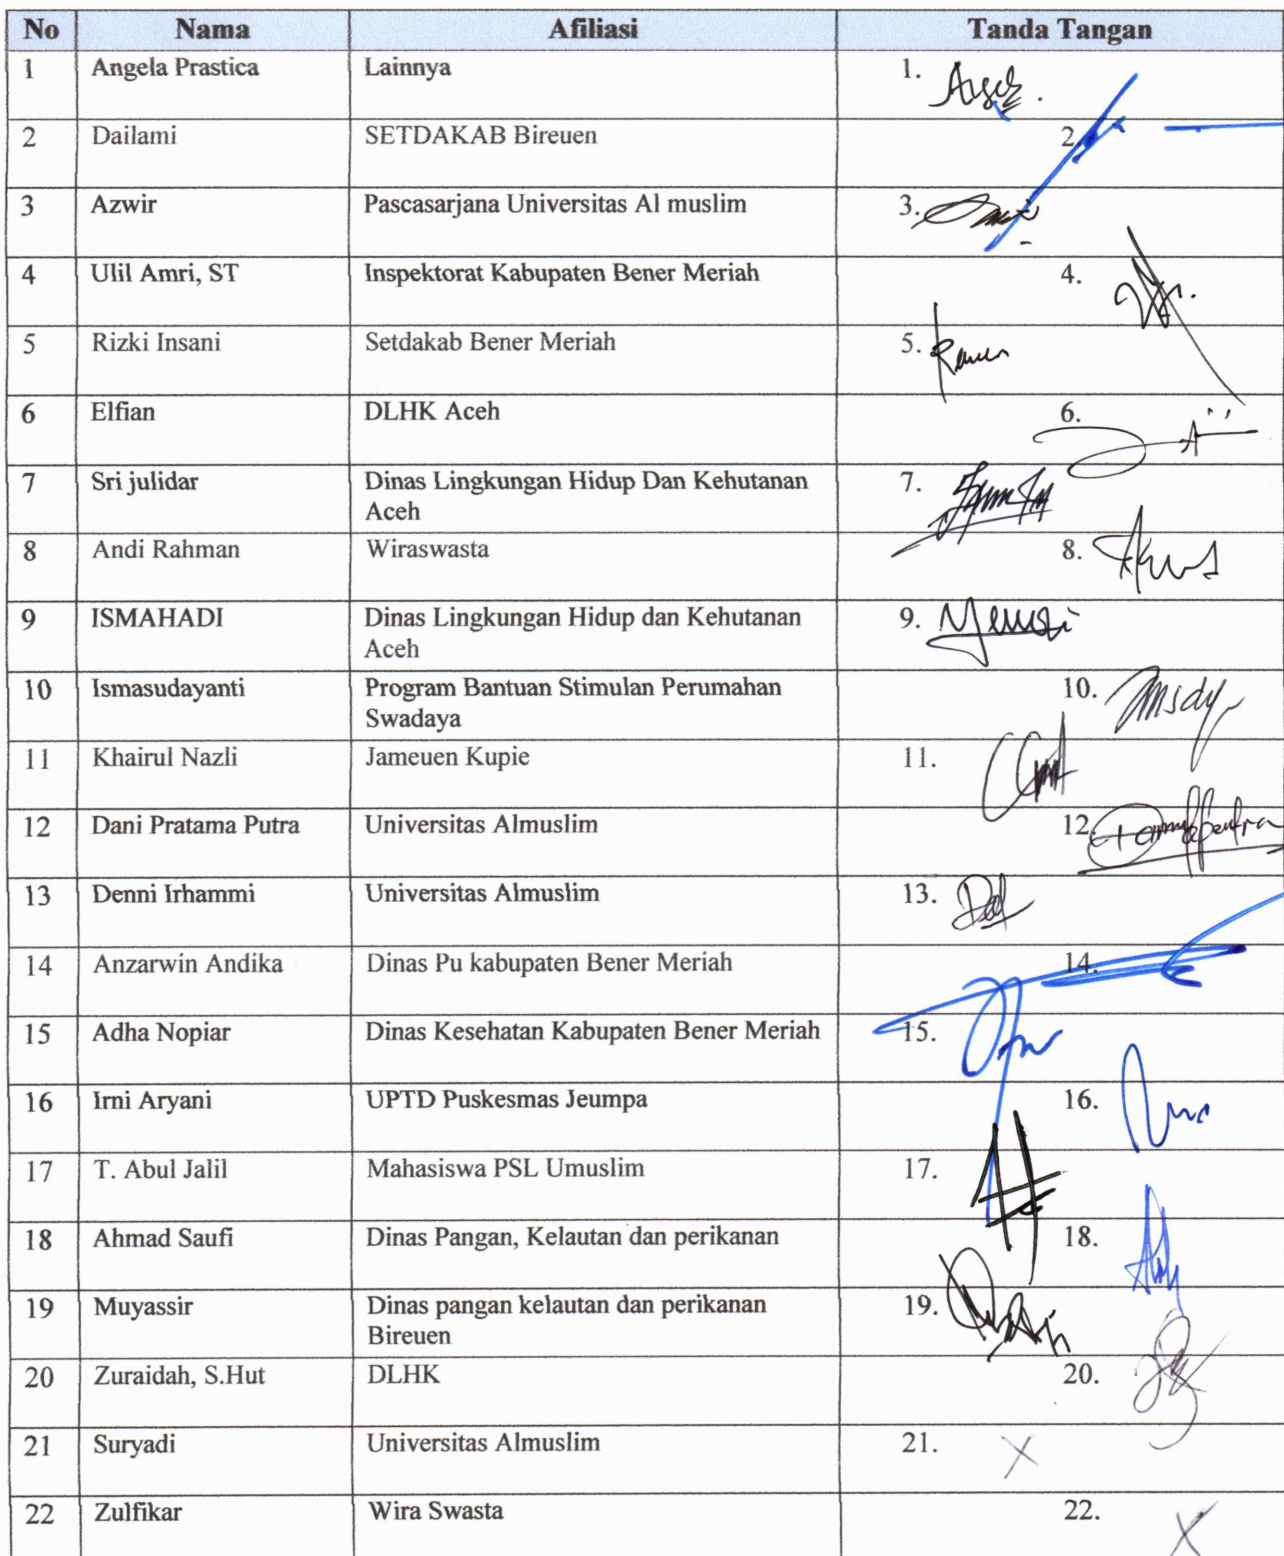 No Nama Afiliasi Tanda Tangan
1 Angela Prastica Lainnya 1.
2 Dailami SETDAKAB Bireuen 2.
3 Azwir Pascasarjana Universitas Al muslim 3.
4 Ulil Amri, ST Inspektorat Kabupaten Bener Meriah 4.
5 Rizki Insani Setdakab Bener Meriah 5.
6 Elfian DLHK Aceh 6.
7 Sri julidar Dinas Lingkungan Hidup Dan Kehutanan 7.
Aceh
8 Andi Rahman Wiraswasta 8.
9 ISMAHADI Dinas Lingkungan Hidup dan Kehutanan 9.
Aceh
10 Ismasudayanti Program Bantuan Stimulan Perumahan 10.
Swadaya
11 Khairul Nazli Jameuen Kupie 11.
12 Dani Pratama Putra Universitas Almuslim 12.
13 Denni Irhammi Universitas Almuslim 13.
14 Anzarwin Andika Dinas Pu kabupaten Bener Meriah 14.
15 Adha Nopiar Dinas Kesehatan Kabupaten Bener Meriah 15.
16 Irni Aryani UPTD Puskesmas Jeumpa 16.
17 T. Abul Jalil Mahasiswa PSL Umuslim 17.
18 Ahmad Saufi Dinas Pangan, Kelautan dan perikanan 18.
19 Muyassir Dinas pangan kelautan dan perikanan 19.
Bireuen
20 Zuraidah, S.Hut DLHK 20.
21 Suryadi Universitas Almuslim 21. X
22 Zulfikar Wira Swasta 22. X